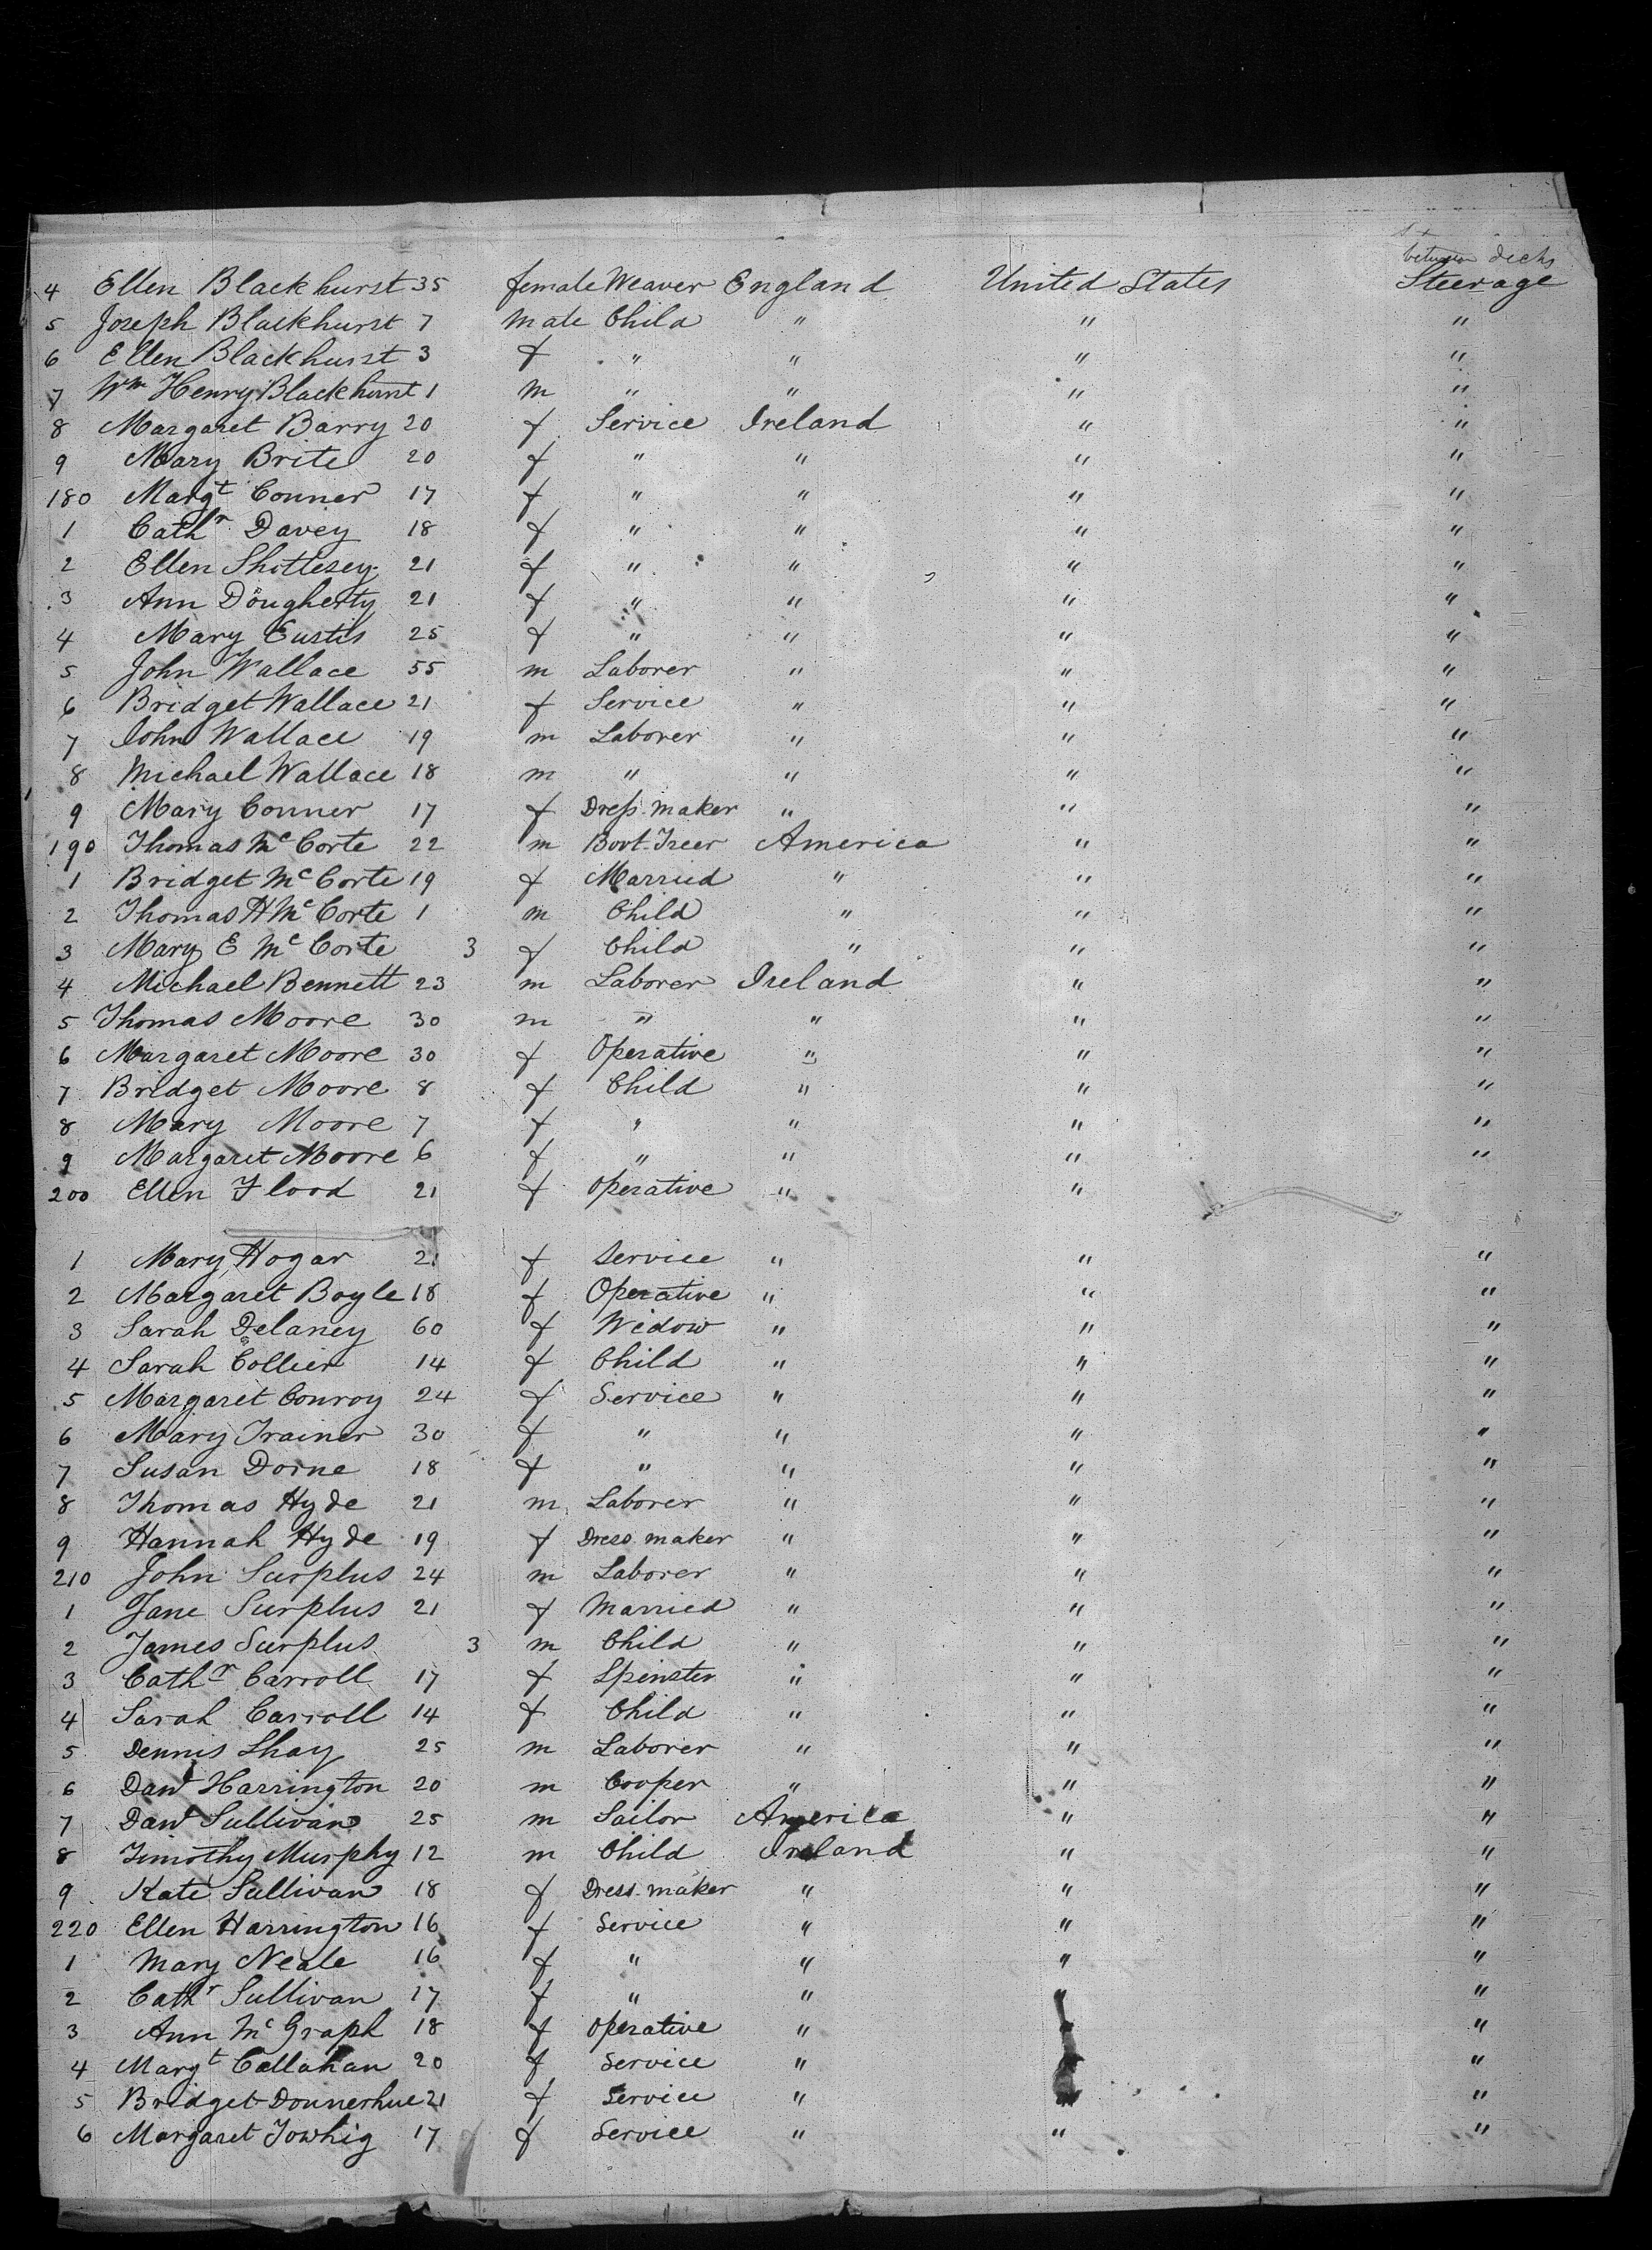 between decks
4 Ellen Blackhurst 35 female Weaver England United States Steerage
5 Joseph Blackhurst 7 Male Child " " "
6 Ellen Blackhurst 3 f " " " "
7 Wm Henry Blackhurst 1 m " " " "
8 Margaret Barry 20 f Service Ireland " "
9 Mary Brite 20 f " " " "
180 Margt Conner 17 f " " " "
1 Cathr Davey 18 f " " " "
2 Ellen 21 f " " " "
3 Ann Dougherty 21 f " " " "
4 Mary Eustis 25 f " " " "
5 John Wallace 55 m Laborer " " "
6 Bridget Wallace 21 f Service " " "
7 John Wallace 19 m Laborer " " "
8 Michael Wallace 18 m " " " "
9 Mary Conner 17 f Dress maker " " "
190 Thomas Mc Corte 22 m Boot-Treer America " "
1 Bridget Mc Corte 19 f Married " " "
2 Thomas H Mc Corte 1 m Child " " "
3 Mary E Mc Corte 3 f Child " " "
4 Michael Bennett 23 m Laborer Ireland " "
5 Thomas Moore 30 m " " " "
6 Margaret Moore 30 f Operative " " "
7 Bridget Moore 8 f Child " " "
8 Mary Moore 7 f " " " "
9 Margaret Moore 6 f " " " "
200 Ellen Flood 21 f Operative " "
1 Mary Hogar 21 f Service " " "
2 Margaret Boyle 18 f Operative " " "
3 Sarah Delaney 60 f Widow " " "
4 Sarah Collier 14 f Child " " "
5 Margaret Conroy 24 f Service " " "
6 Mary Trainer 30 f " " " "
7 Susan Dorne 18 f " " " "
8 Thomas Hyde 21 m Laborer " " "
9 Hannah Hyde 19 f Dress maker " " "
210 John Surplus 24 m Laborer " " "
1 Jane Surplus 21 f Married " " "
2 James Surplus 3 m Child " " "
3 Cathr Carroll 17 f Spinster " " "
4 Sarah Carroll 14 f Child " " "
5 Dennis Shay 25 m Laborer " " "
6 Davd Harrington 20 m Cooper " " "
7 Davd Sullivan 25 m Sailor America " "
8 Timothy Murphy 12 m Child Ireland " "
9 Kate Sullivan 18 f Dress maker " " "
220 Ellen Harrington 16 f Service " " "
1 Mary Neale 16 f " " " "
2 Cathr Sullivan 17 f " " " "
3 Ann Mc Graph 18 f Operative " "
4 Margt Callahan 20 f Service " "
5 Bridget Donnerhue 21 f Service " "
6 Margaret Towhig 17 f Service " " "